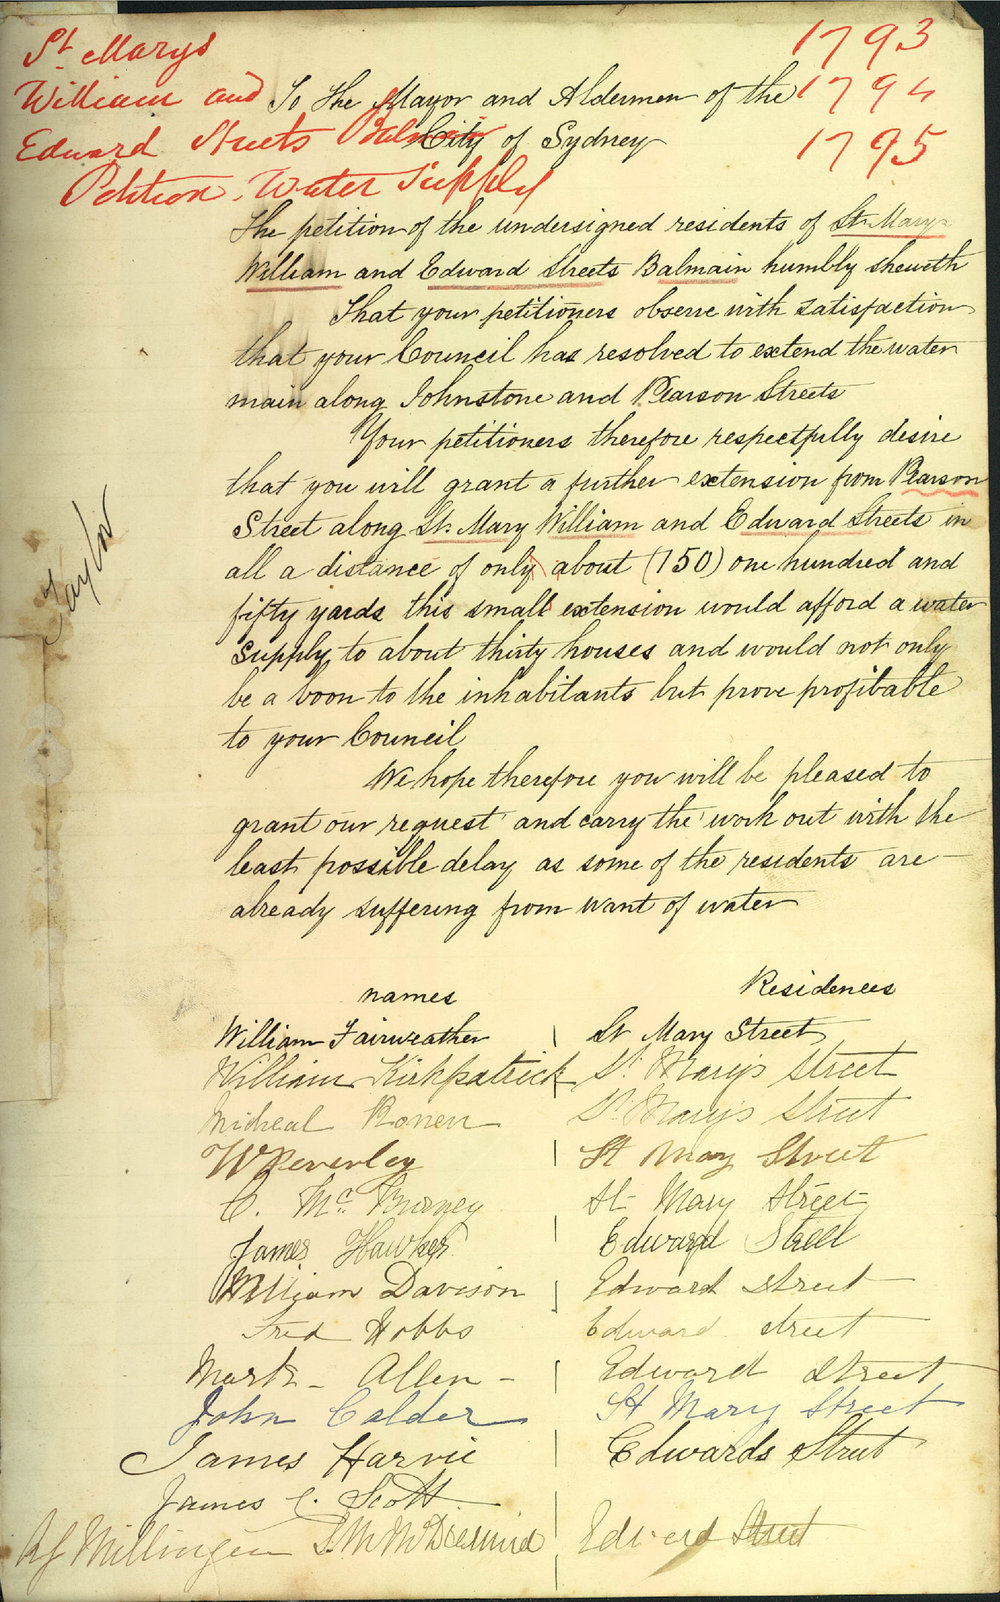 St Marys
William and
Edward Streets Balmain
Petition. Water Supply
1793
1794
1795
To the Mayor and Aldermen of the
City of Sydney
The petition of the undersigned residents of St Mary
William and Edward Streets Balmain humbly sheweth
That your petitioners observe with satisfaction
that your Council has resolved to extend the water
main along Johnstone and Pearson Streets
Your petitioners therefore respectfully desire
that you will grant a further extension from Pearson
Street along St Mary William and Edward Streets in
all a distance of only about (150) one hundred and
fifty yards this small extension would afford a water
supply to about thirty houses and would not only
be a boon to the inhabitants but prove profitable
to your Council
We hope therefore you will be pleased to
grant our request and carry the work out with the
least possible delay as some of the residents are
already suffering from want of water
Taylor
names Residences
William Fairweather St Mary Street
William Kirkpatrick St Mary's Street
Micheal Ronen St Mary's Street
W Peverley St Mary Street
C. Mc St Mary Street
James Hawker Edward Street
William Davison Edward Street
Fred Hobbs Edward street
Mark Allen Edward Street
John Calder St Mary Street
James Harvie Edwards Street
James C. Scott
Millingen Edward Street